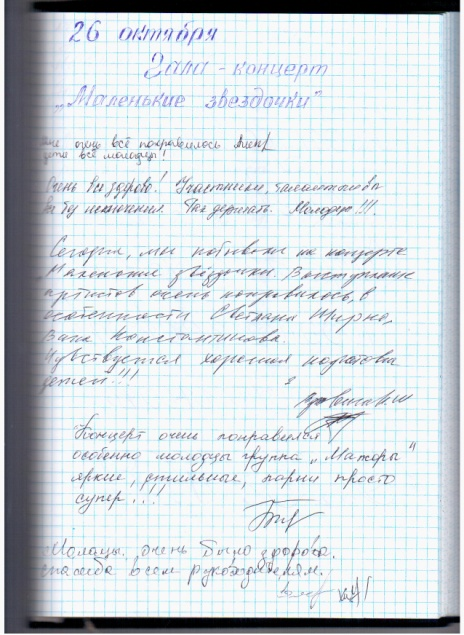 26 октября
Гала - концерт
„Маленькие звездочки"
мне очень всё понравилось
дети все молодцы!
Очень всё здорово! Участники, талантливы
все без исключения. Так держать. Молодцы!!!
Сегодня, мы побывали на концерте
Маленькие звёздочки. Выступление
артистов очень понравилось, в
особенности Светлана
Ваня Константинова.
Чувствуется хорошая подготовка
детей!!!
Концерт очень понравился
особенно молодцы группа „Мажоры"
яркие, стильные, парни просто
супер!!!
Молодцы. очень было здорово.
спасибо всем руководителям.